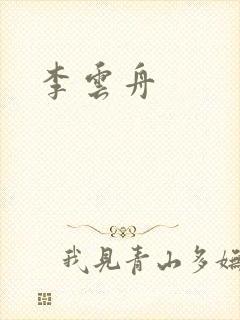 李雲舟
我見青山多嫵